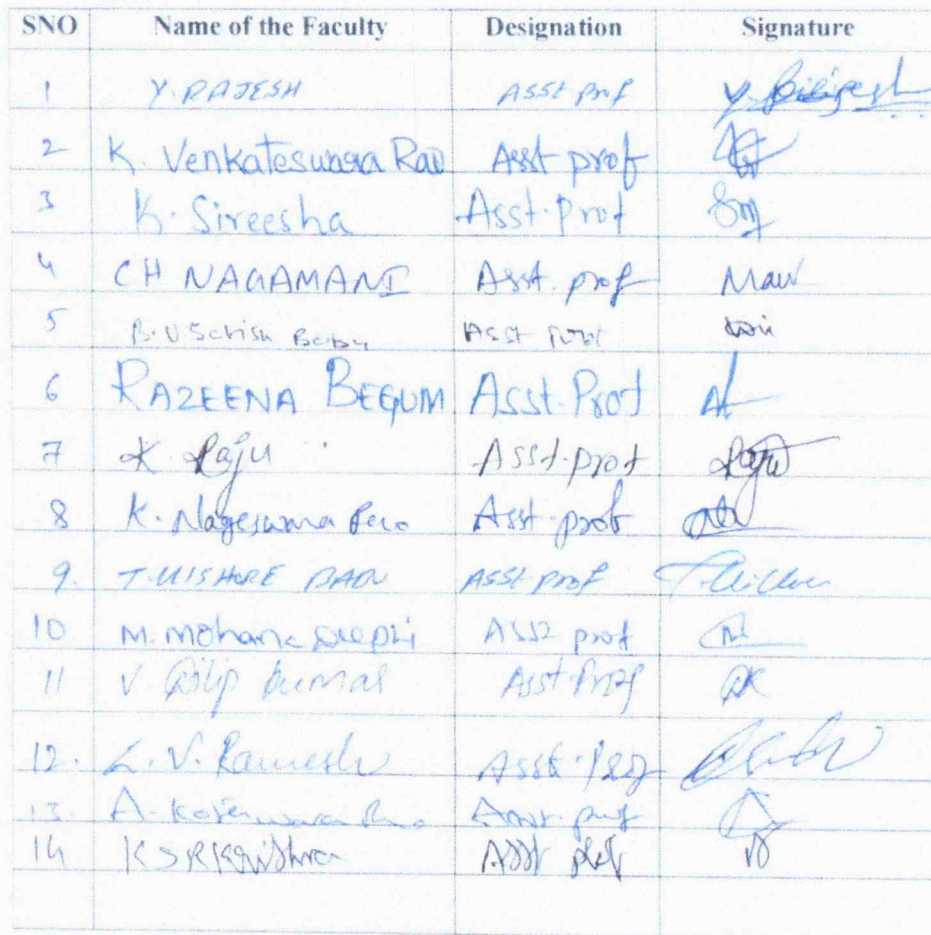 SNO Name of the Faculty Designation Signature
1 Y. RAJESH ASST prof Y. Rajesh
2 K. Venkateswara Rao Asst prof
3 K. Sireesha Asst. Prof
4 CH NAGAMANI Asst. prof Mani
5 B. V Satish Babu Asst Prof
6 RAZEENA BEGUM Asst. Prof
7 K Raju Asst. prof Raju
8 K. Nageswara Rao Asst. prof
9. T. KISHORE BABU ASST prof T. Kishore
10 M. Mohana Deepthi Asst prof
11 V Dilip Kumar Asst. Prof DK
12. L. V. Ramesh Asst. Prof
13. A. Koteswara Rao Asst. prof
14 K S R Krishna Asst prof